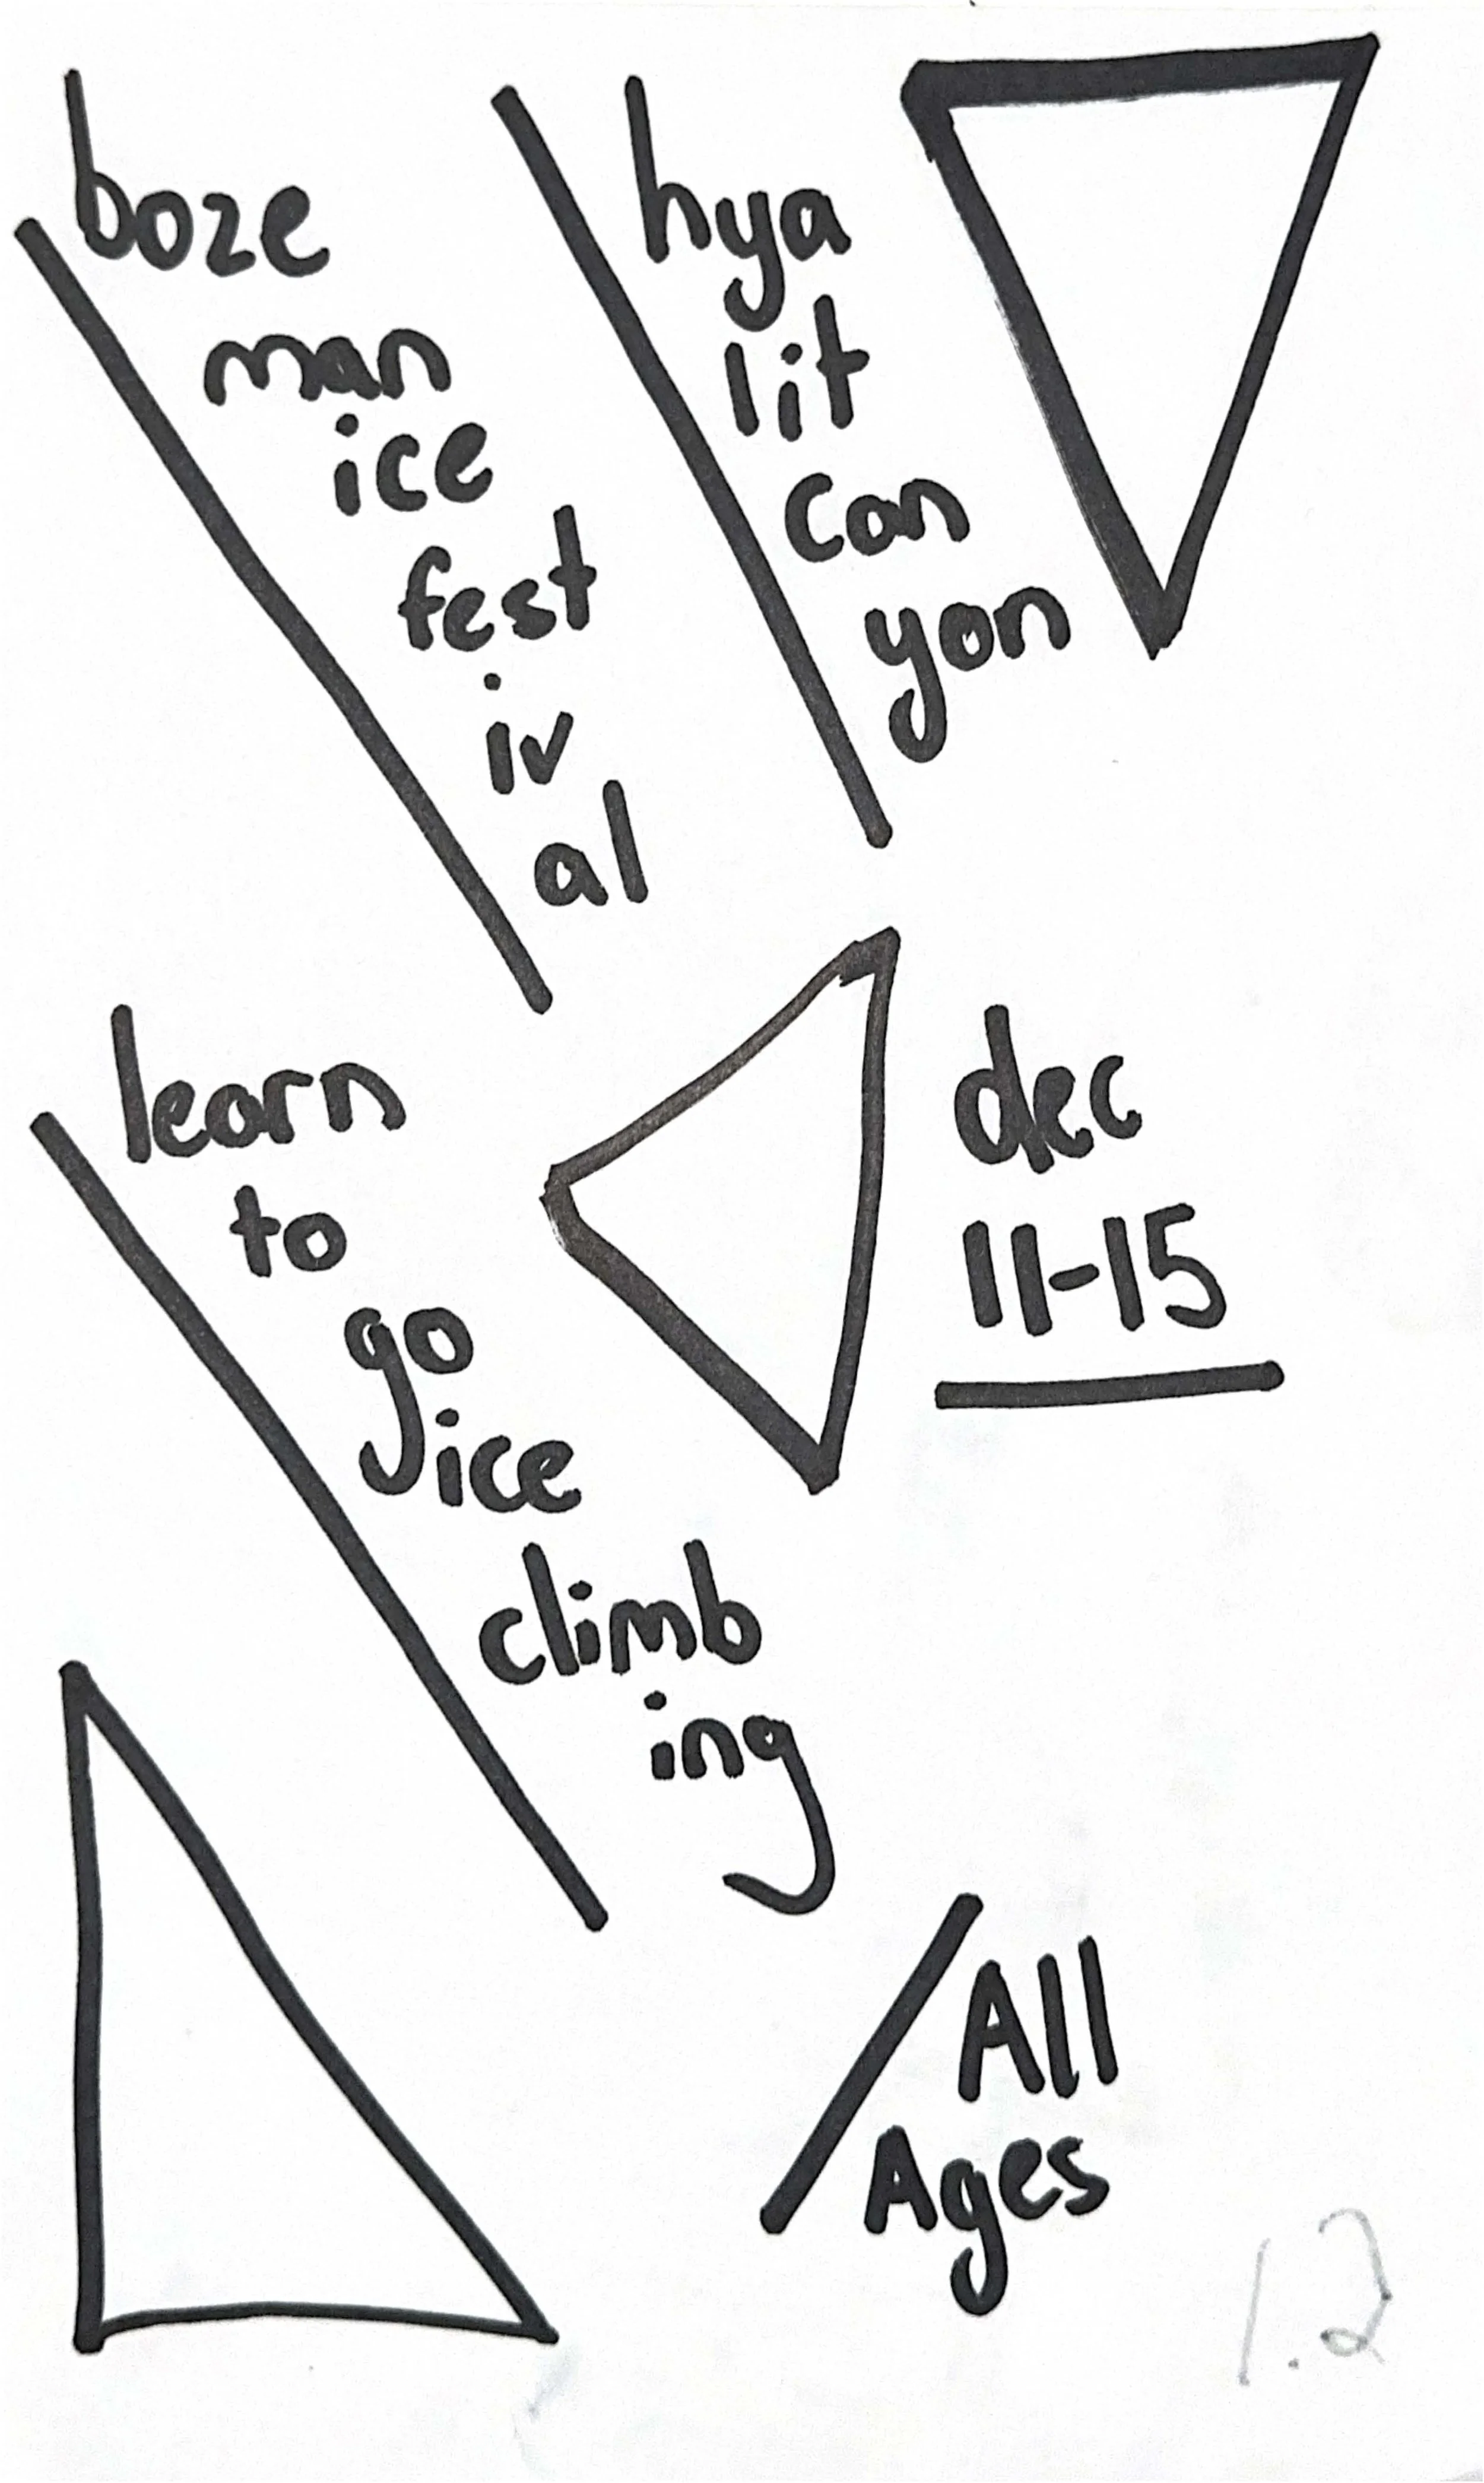 boze
man
ice
fest
iv
al
hya
lit
can
yon
learn
to
go
ice
climb
ing
dec
11-15
All
Ages
1.2